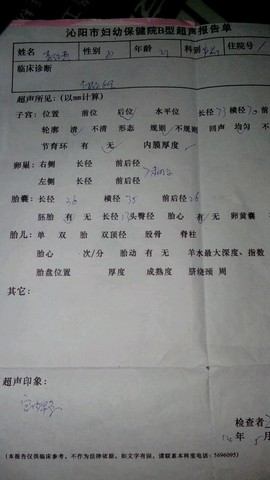 沁阳市妇幼保健院B型超声报告单
姓名 性别 女 年龄 科别 住院号
临床诊断
超声所见：(以mm计算)
子宫：位置 前位 后位 水平位 长径 73 横径 前后径
轮廓 清 不清 形态 规则 不规则 回声 均匀 不
节育环 有 无 内膜厚度
卵巢：右侧 长径 前后径
左侧 长径 前后径
胎囊：长径 横径 35 前后径
胚胎 有 无 长径 头臀径 胎心 有 无 卵黄囊
胎儿：单 双 胎 双顶径 股骨 脊柱
胎心 次/分 胎动 有 无 羊水最大深度、指数
胎盘位置 厚度 成熟度 脐绕颈 周
其它：
超声印象：
宫内早孕
检查者
年 5 月
(本报告仅供临床参考，不作为法律依据，如文字有误，请联系本科室电话：5696095)